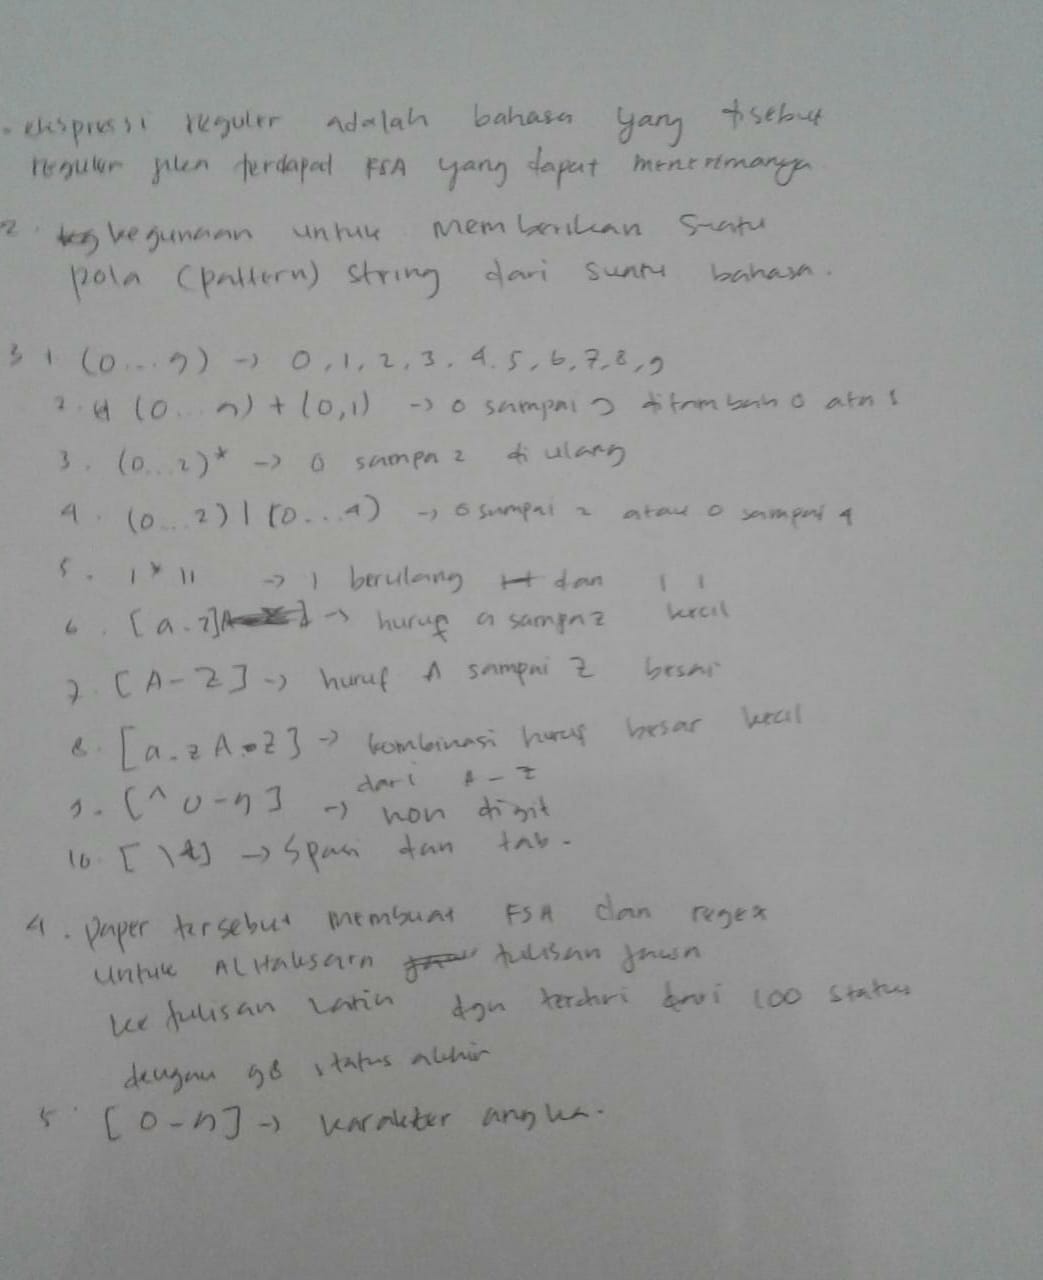 . ekspressi reguler adalah bahasa yang disebut
reguler jika terdapat FSA yang dapat menerimanya
2. kegunaan untuk memberikan suatu
pola (pattern) string dari suatu bahasa.
3 1 (0...9) -> 0, 1, 2, 3, 4. 5, 6, 7, 8, 9
2. (0...9) + (0,1) -> 0 sampai 9 ditambah 0 atau 1
3. (0...2)* -> 0 sampa 2 di ulang
4. (0...2) | (0...4) -> 0 sampai 2 atau 0 sampai 4
5. 1*11 -> 1 berulang dan 1 1
6. [a-z] -> huruf a sampa z kecil
7. [A-Z] -> huruf A sampai Z besar
8. [a-z A-Z] -> kombinasi huruf besar kecil
dari A-Z
9. [^0-9] -> non digit
10. [ \t] -> Spasi dan tab.
4. paper tersebut membuat FSA dan regex
untuk tulisan jawa
ke tulisan Latin dgn terdiri dari 100 status
dengan 98 status akhir
5. [0-9] -> karakter angka.